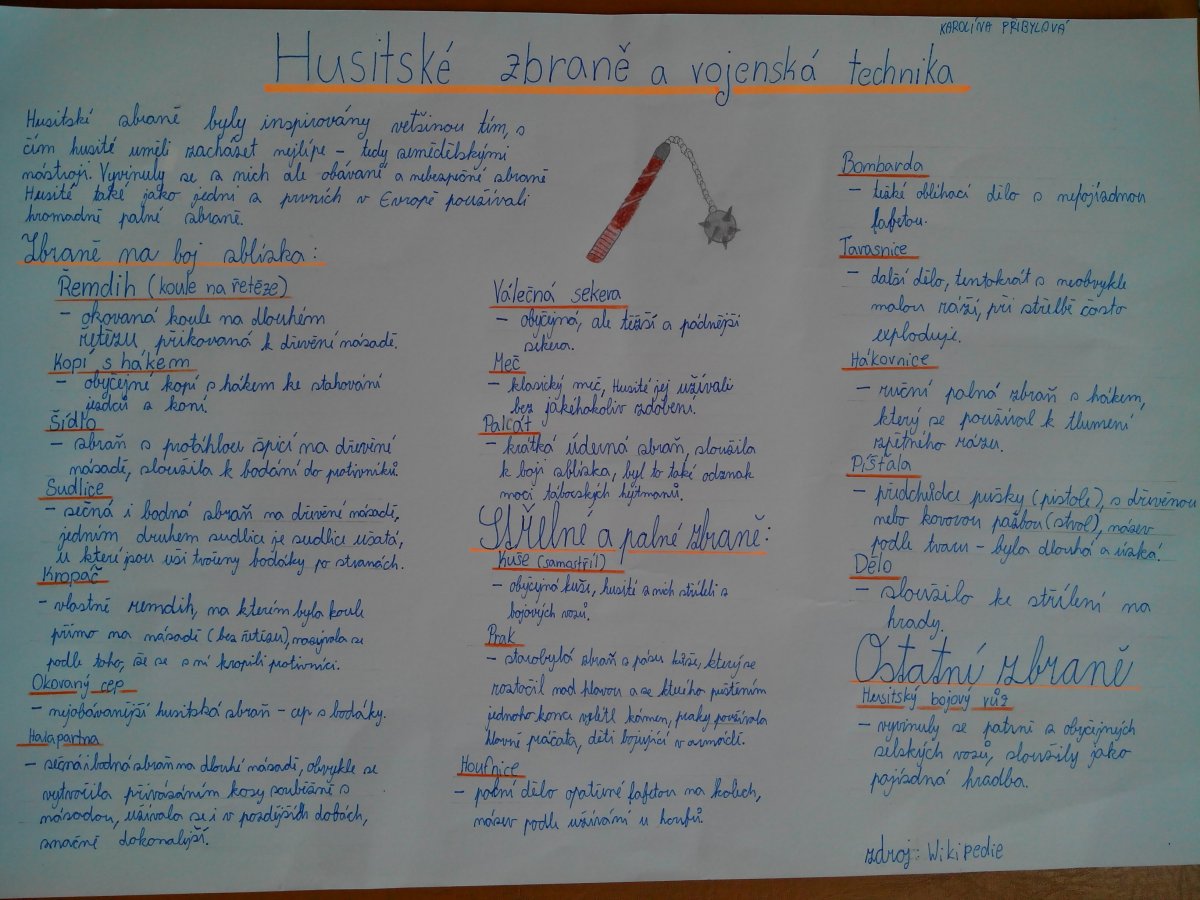 KAROLÍNA PŘIBYLOVÁ
Husitské zbraně a vojenská technika
Husitské zbraně byly inspirovány vetšinou tím, s
čím husité uměli zacházet nejlépe - tedy zemědělskými
nástroji. Vyvinuly se z nich ale obávané a nebezpečné zbraně
Husité také jako jedni z prvních v Evropě používali
hromadně palné zbraně.
Zbraně na boj zblízka:
Řemdih (koule na řetěze)
- okovaná koule na dlouhém
řetězu přikovaná k dřevěné násadě.
Kopí s hákem
- obyčejné kopí s hákem ke stahování
jezdců z koní.
Šídlo
- zbraň s protáhlou špicí na dřevěné
násadě, sloužila k bodání do protivníků.
Sudlice
- sečná i bodná zbraň na dřevěné násadě,
jedním druhem sudlice je sudlice ušatá,
u které jsou uši tvořeny bodáky po stranách.
Kropáč
- vlastně remdih, na kterém byla koule
přímo na násadě (bez řetězu), nazývala se
podle toho, že se s ní kropili protivníci.
Okovaný cep
- nejobávanější husitská zbraň - cep s bodáky.
Halapartna
- sečná i bodná zbraň na dlouhé násadě, obvykle se
vytvořila přivázáním kosy souběžně s
násadou, užívala se i v pozdějších dobách,
značně dokonalejší.
Válečná sekera
- obyčejná, ale těžší a pádnější
sekera.
Meč
- klasický meč, Husité jej užívali
bez jakéhokoliv zdobení.
Palcát
- krátká úderná zbraň, sloužila
k boji zblízka, byl to také odznak
moci táborských hejtmanů.
Střelné a palné zbraně:
Kuše (samostříl)
- obyčejná kuše, husité z nich stříleli z
bojových vozů.
Prak
- starobylá zbraň z pásu kůže, který se
roztočil nad hlavou a ze kterého puštěním
jednoho konce vylétl kámen, praky používala
hlavně práčata, děti bojující v armádě.
Houfnice
- polní dělo opatřené lafetou na kolech,
název podle užívání u houfů.
Bombarda
- těžké obléhací dělo s nepojízdnou
lafetou.
Tarasnice
- další dělo, tentokrát s neobvykle
malou ráží, při střelbě často
exploduje.
Hákovnice
- ruční palná zbraň s hákem,
který se používal k tlumení
zpětného rázu.
Píšťala
- předchůdce pušky (pistole), s dřevěnou
nebo kovovou pažbou (stvol), název
podle tvaru - byla dlouhá a úzká.
Dělo
- sloužilo ke střílení na
hrady.
Ostatní zbraně
Husitský bojový vůz
- vyvinuly se patrně z obyčejných
selských vozů, sloužily jako
pojízdná hradba.
zdroj: Wikipedie